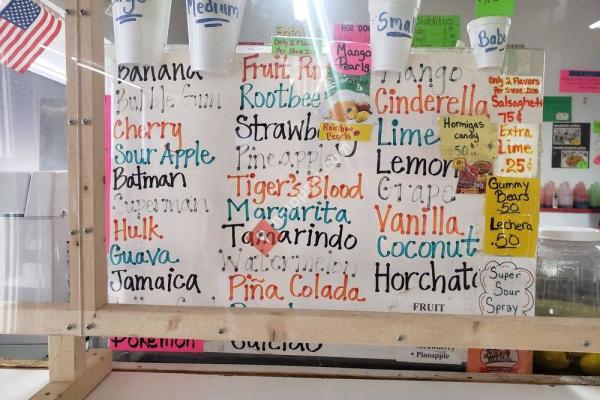 Medium
Small
Baby
Only 2 Flavors
Per Snow
HOT DOG
Mango
Pearls
Banana
Bubble Gum
Cherry
Sour Apple
Batman
Superman
Hulk
Guava
Jamaica
Pokemon
Fruit
Rootbee
Strawb
Pineapple
Tiger's Blood
Margarita
Tamarindo
Watermelon
Piña Colada
Rainbow
Pearls
Mango
Cinderella
Lime
Lemon
Grape
Vanilla
Coconut
Horchat
FRUIT
• Pineapple
Hormigas
candy
50
Only 2 Flavors
Salsagheti
75¢
Extra
Lime
.25¢
Gummy
Bears
.50
Lechera
.50
Super
Sour
Spray